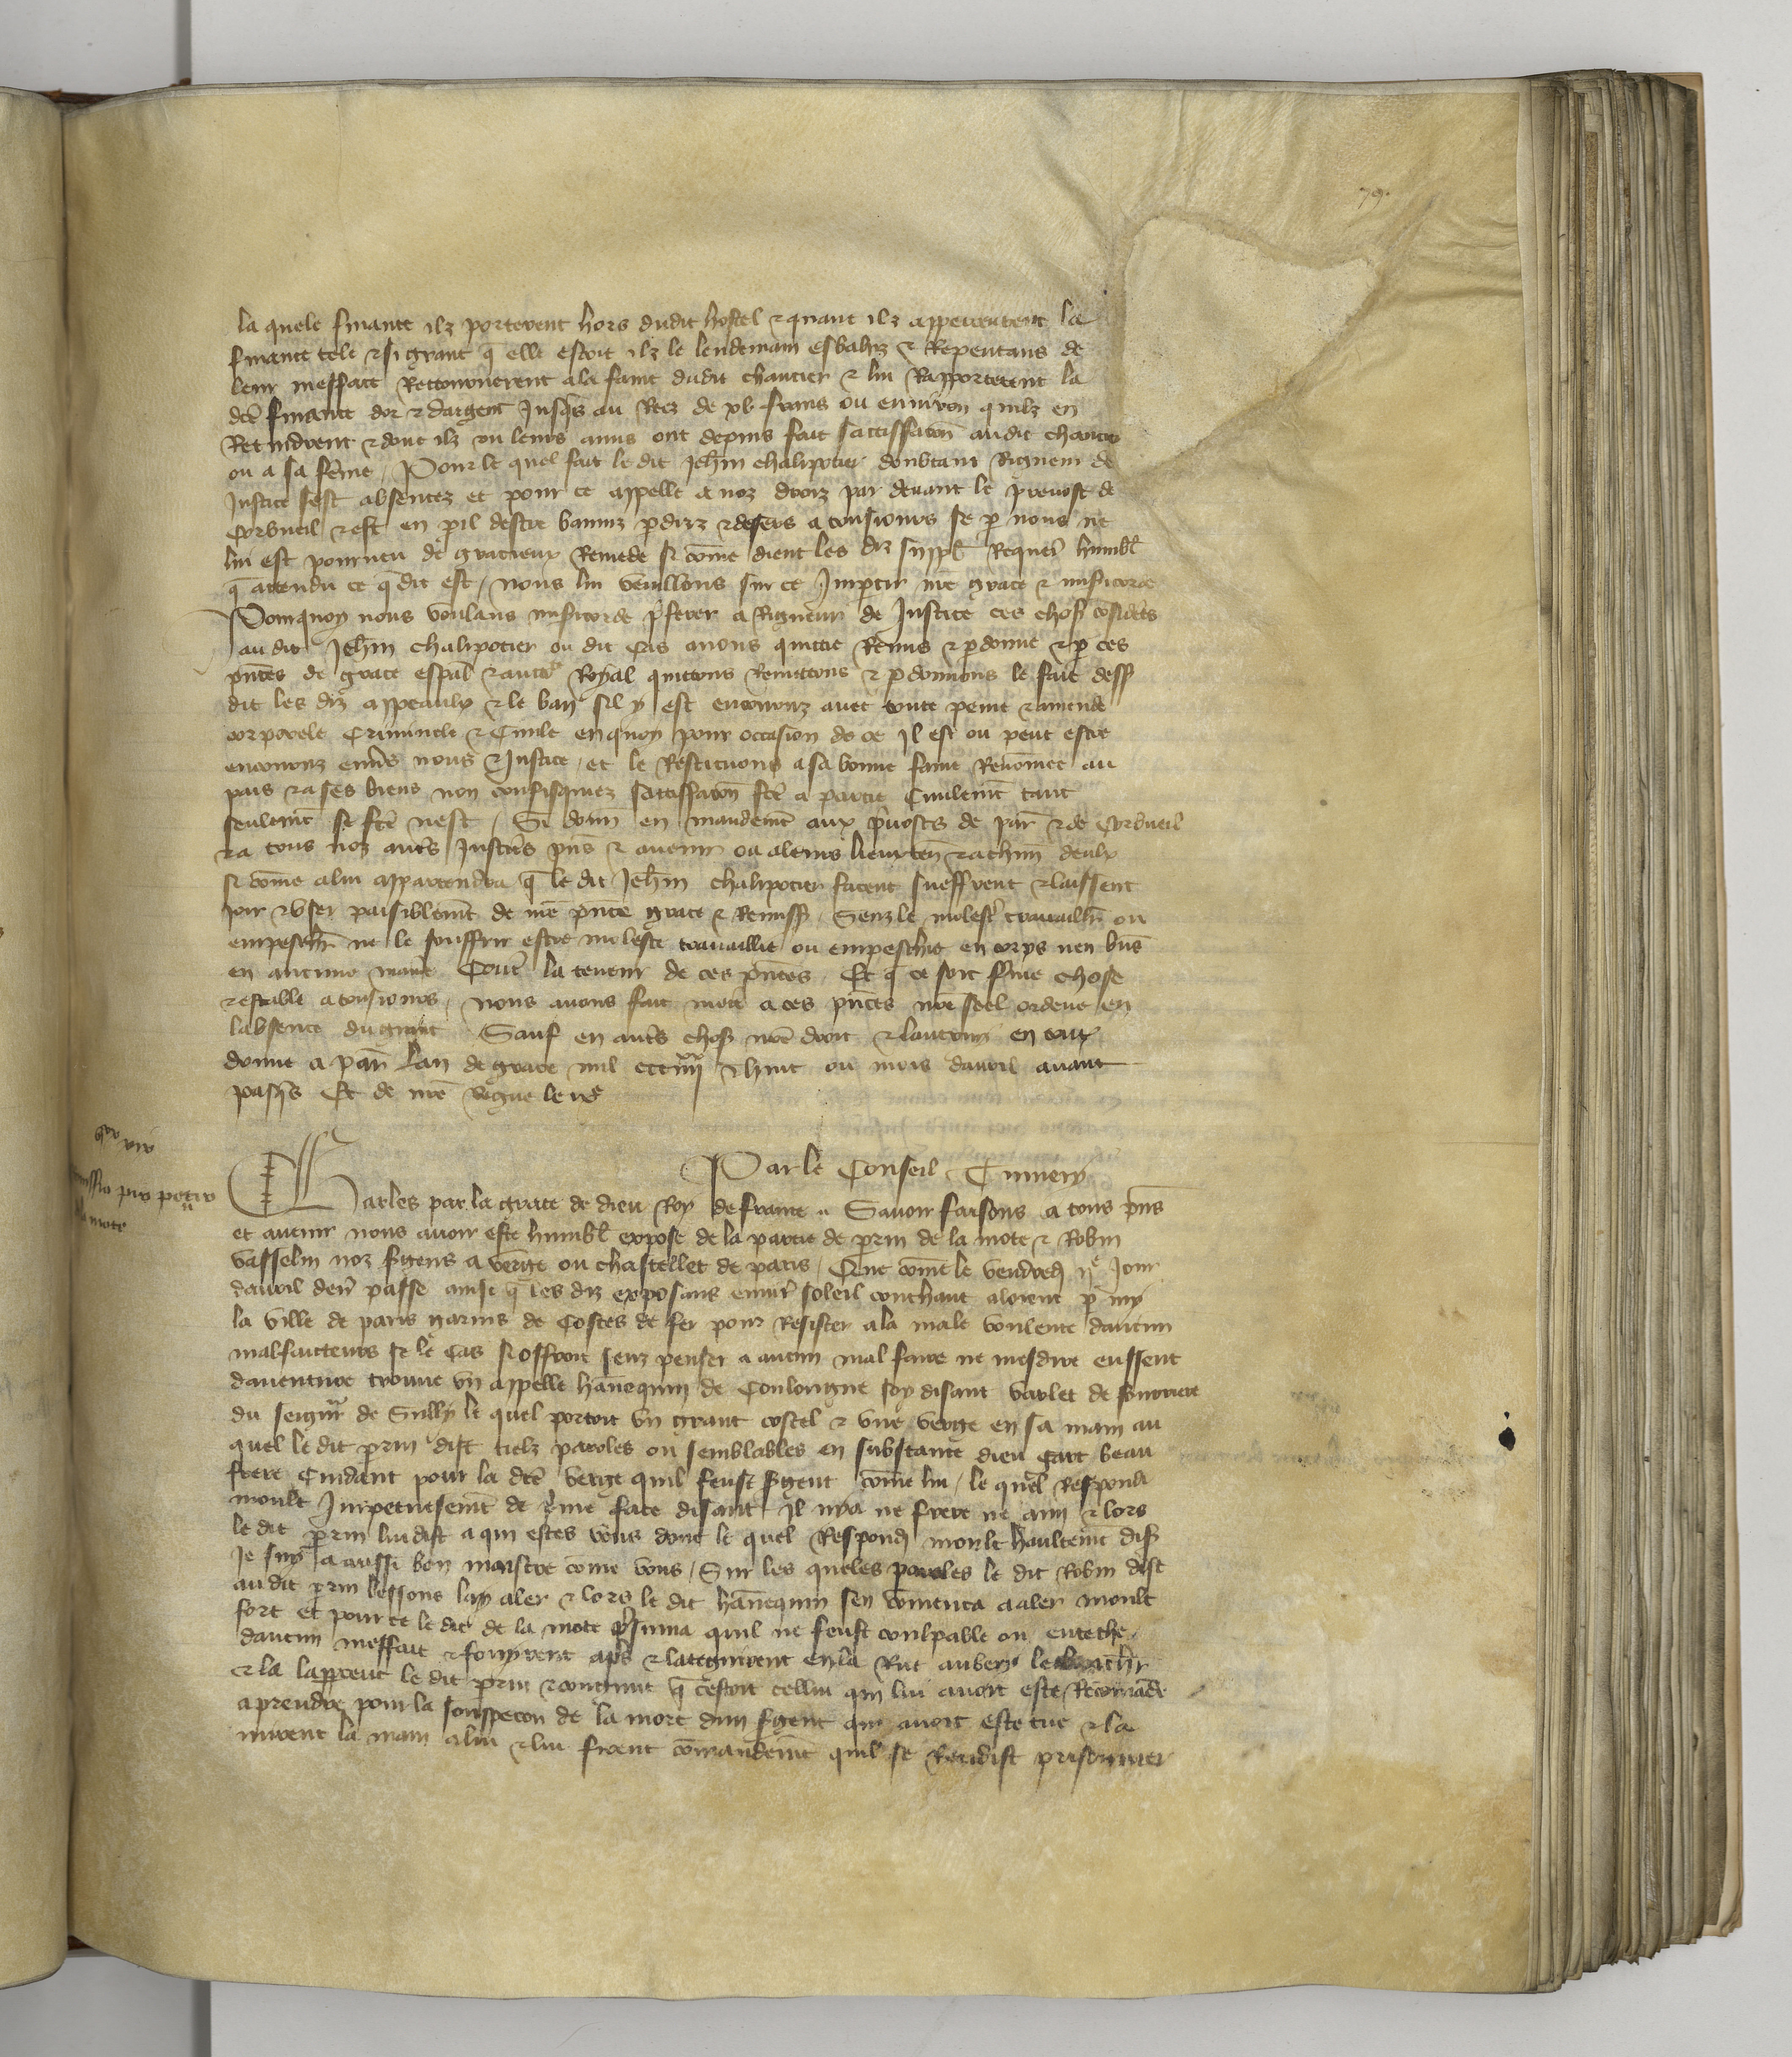 79.
la quele finance ilz porterent hors dudit hostel & quant ilz apperceurent la
finance tele & si grant q̄ elle estoit ilz le lendemain esbahiz & Repentans de
leur meffait Retournerent a la fame dudit chancier & lui Rapporterent la
dc̄e finance dor & dargent Jusq̄s au Rez de xv. frans ou environ quilz en
Retindrent & dont ilz ou leurs amis ont depuis fait sattisfac̄on audit chancier
ou a sa fēme / Pour le quel fait le dit Jeh̄n chalipotier doubtant Rigueur de
Justice sest absentez et pour ce appelle a noz droiz par devant le prevost de
Corbueil & est en p̄il destre banniz p̄diz & desers a tousiours se p̄ nous ne
lui est pourveu de gracieux Remede si cōme dient les diz suppl̄ Requer̄ humbl̄
q̄ attendu ce q̄ dit est / nous lui vueillons sur ce Imp̄tir nr̄e grace & misericorde
Pourquoy nous voulans misericorde p̄ferer a Rigueur de Justice ces chos̄ cōsiderēs
au dit Jeh̄n chalipotier ou dit cas avons quittie Remis & p̄donne & p̄ ces
pn̄tes de grace esp̄al & auctē Royal quittons Remettons & p̄donnons le fait dess̄
dit les diz appeaulx & le ban sil y est encouruz avec toute peine & amende
corporele Criminele & Civile en quoy pour occasion de ce Il est ou peut estre
encouruz envs̄ nous & Justice / et le Restituons a sa bonne fame Renōmee au
pais & a ses biens non confisquez sattisfac̄on fc̄e a partie Civilemt̄ tant
seulemt̄ se fc̄e nest / Si donn̄ en mandemt̄ aux p̄vosts de par̄ & de Corbueil
& a tous noz autr̄s Justic̄es pn̄s & avenir ou a leurs lieuxten̄ & a chūn deulx
si cōme a lui appartendra q̄ le dit Jeh̄n chalipotier facent sueffrent & laissent
joir & user paisiblemt̄ de nr̄e pn̄te grace & Remiss̄ / Senz le molest̄ travaill̄ ou
empesch̄ ne le souffrir estre moleste travaillie ou empeschie en corps nen bn̄s
en aucune manīe Contr̄ la teneur de ces pn̄tes / Et q̄ ce soit ferme chose
& estable a tousiours / nous avons fait mettr̄ a ces pn̄tes nr̄e seel ordene en
labsence du grant Sauf en autr̄s chos̄ nr̄e droit & lautruy en tout
donne a par̄ Lan de grace mil ccciiij xx & huit ou mois davril avant
pasq̄s Et de nr̄e Regne le ix e
Par le Conseil Cumery
pro petro
la mote
Charles par la grace de dieu Roy de france &c Savoir faisons a tous pn̄s
et avenir nous avoir este humbl̄ expose de la partie de perrin de la mote & Robin
vasselin noz sergens a verge ou chastellet de paris / Que cōme le vendredi ij e Jour
davril dern̄ passe ainsi q̄ les diz exposans envir̄ soleil couchant aloient p̄ my
la ville de paris garnis de Costes de fer pour Resister a la male voulente daucuns
malfaicteurs se le cas si offroit senz penser a aucun mal faire ne mesdire eussent
daventure trouve un appelle hānequin de Coulongne soy disant varlet de fourriere
du seigneur de Sully le quel portoit un grant costel & une verge en sa main au
quel le dit perrin dist tielz paroles ou semblables en substance dieu gart beau
frere Cuidant pour la dc̄e verge quil feust sergent cōme lui / le quel Respondi
moult Impetueusemt̄ de ferme face disant Il nya ne frere ne amy & lors
le dit perrin lui dist a qui estes vous donc le quel Respondi moult haultemt̄ dis̄
Je suy a aussi bon maistre cōme vous / Sur les queles paroles le dit Robin dist
au dit perrin lessons lay aler & lors le dit hānequin sen cōmenca a aler moult
fort et pour ce le dit de la mote p̄suma quil ne feust coulpable ou enteche
daucun meffait & fouyrent apr̄s & lateignirent en la Rue aubery le bouchier
& la lapperceut le dit perrin & congnut q̄ cestoit cellui qui lui avoit este Recōmāde
a prendre pour la souspecon de la mort dun sergent qui avoit este tue & la
mirent la main a lui & lui firent cōmandemt̄ quil se Rendist prisonnier